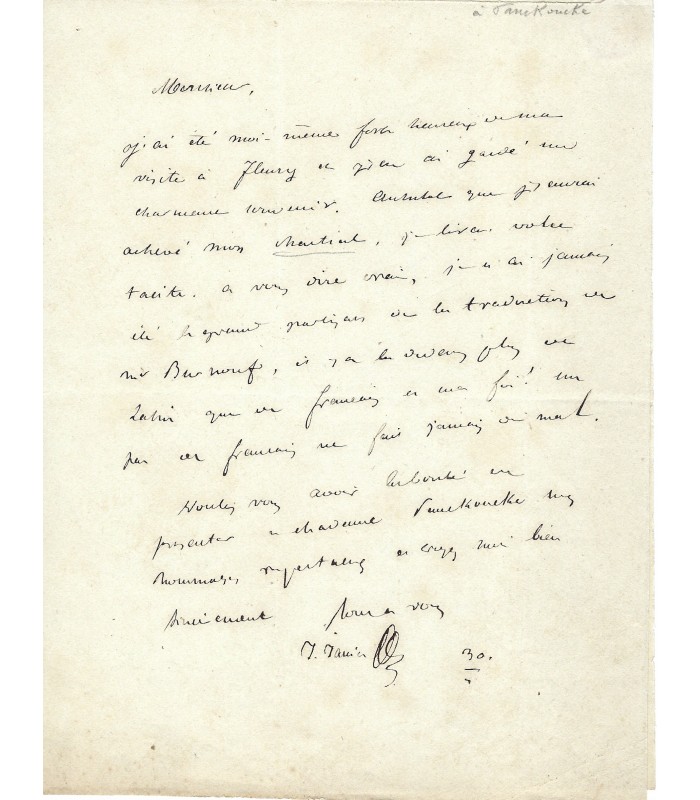 à Panckoucke
Monsieur,
j'ai été moi-même fort heureux de ma
visite à Fleury et j'en ai gardé un
charmant souvenir. Aussitot que j'aurai
achevé mon Martial, je lirai votre
tacite. a vous dire vrai, je n'ai jamais
été le grand partisan de la traduction de
mr Burnouf, il y a là dedans plus de
Latin que de francais et ma foi! un
peu de francais ne fait jamais de mal.
Voulez vous avoir la bonté de
presenter a Madame Panckoucke mes
hommages respectueux et croyez moi bien
sincèrement tout à vous
J. Janin
30.